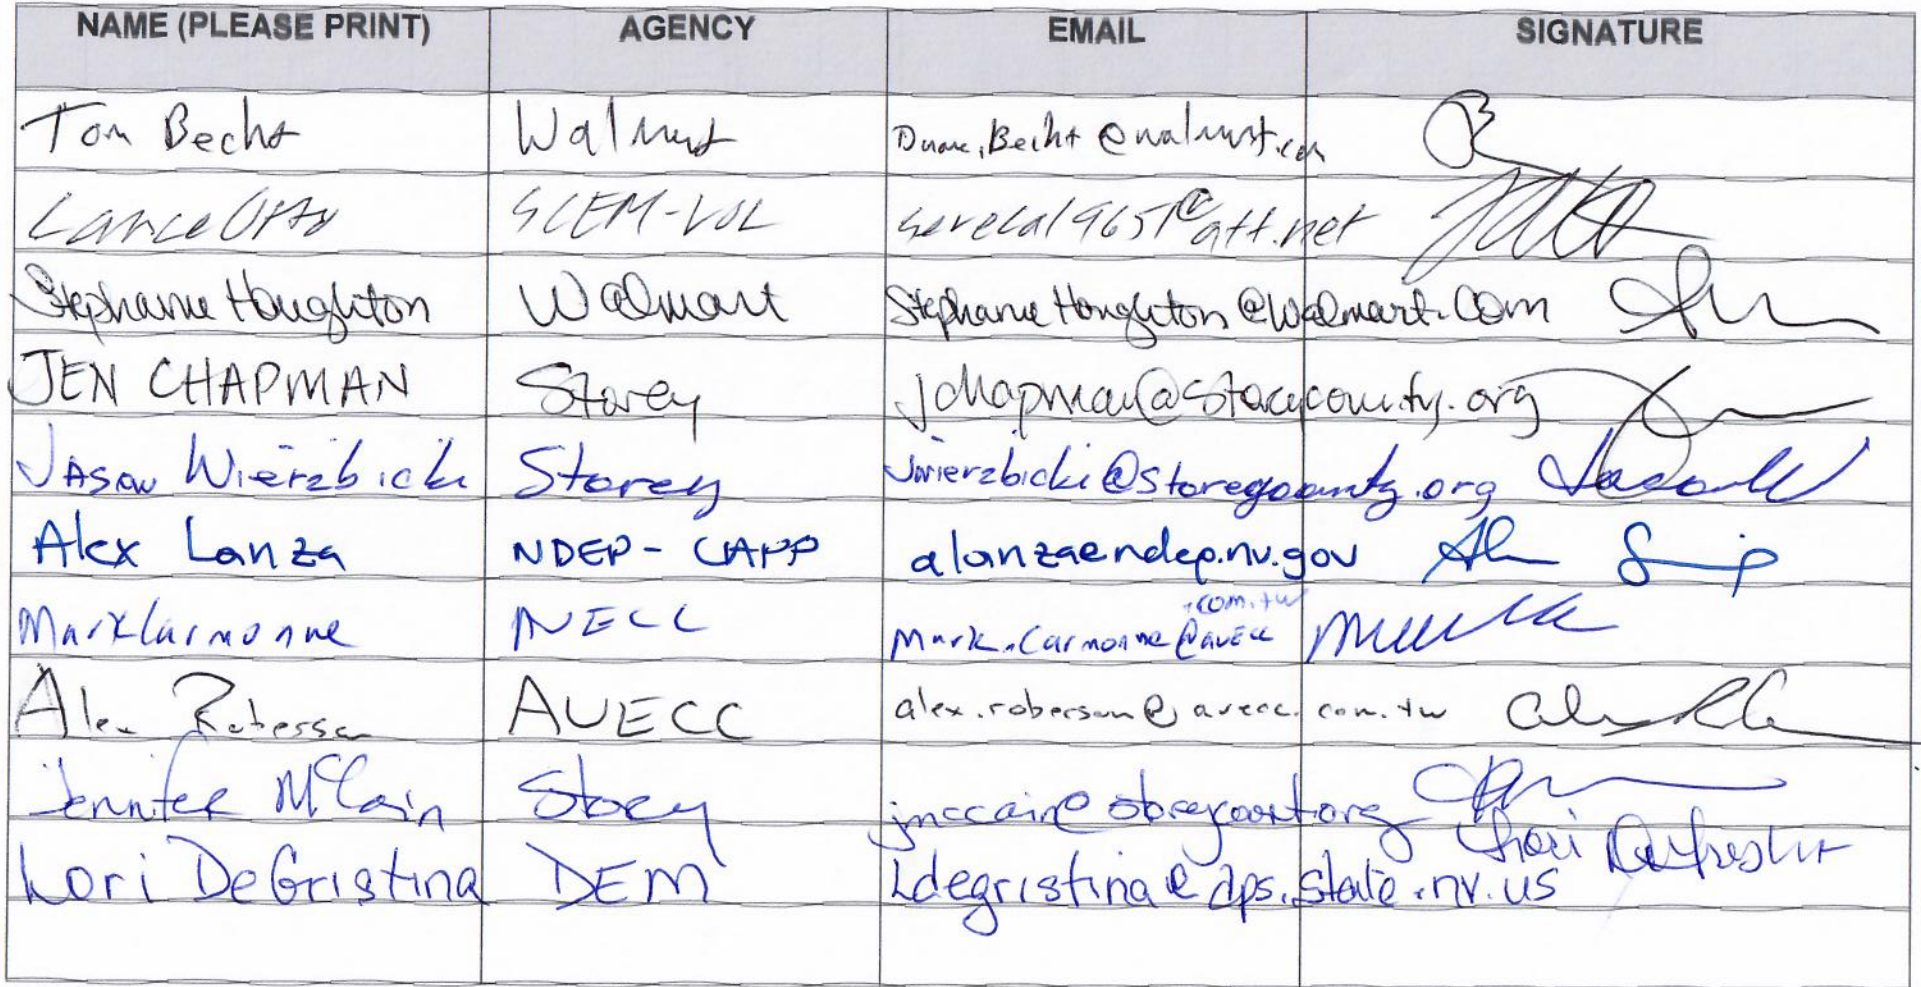 NAME (PLEASE PRINT) AGENCY EMAIL SIGNATURE
Tom Becht Walmart Duane.Becht@walmart.com
Lance Otto SCEM-VOL
Stephanie Houghton Walmart Stephanie Houghton@Walmart.com
JEN CHAPMAN Storey jchapman@storeycounty.org
JASON Wierzbicki Storey jwierzbicki@storeycounty.org
Alex Lanza NDEP - CAPP alanza@ndep.nv.gov
.com.tw
Mark Carmonne AVECC Mark.Carmonne@avecc
Alex Roberson AVECC alex.roberson@avecc.com.tw
Jennifer McCain Storey jmccain@storeycounty.org
Lori DeGristina DEM Ldegristina@dps.state.nv.us